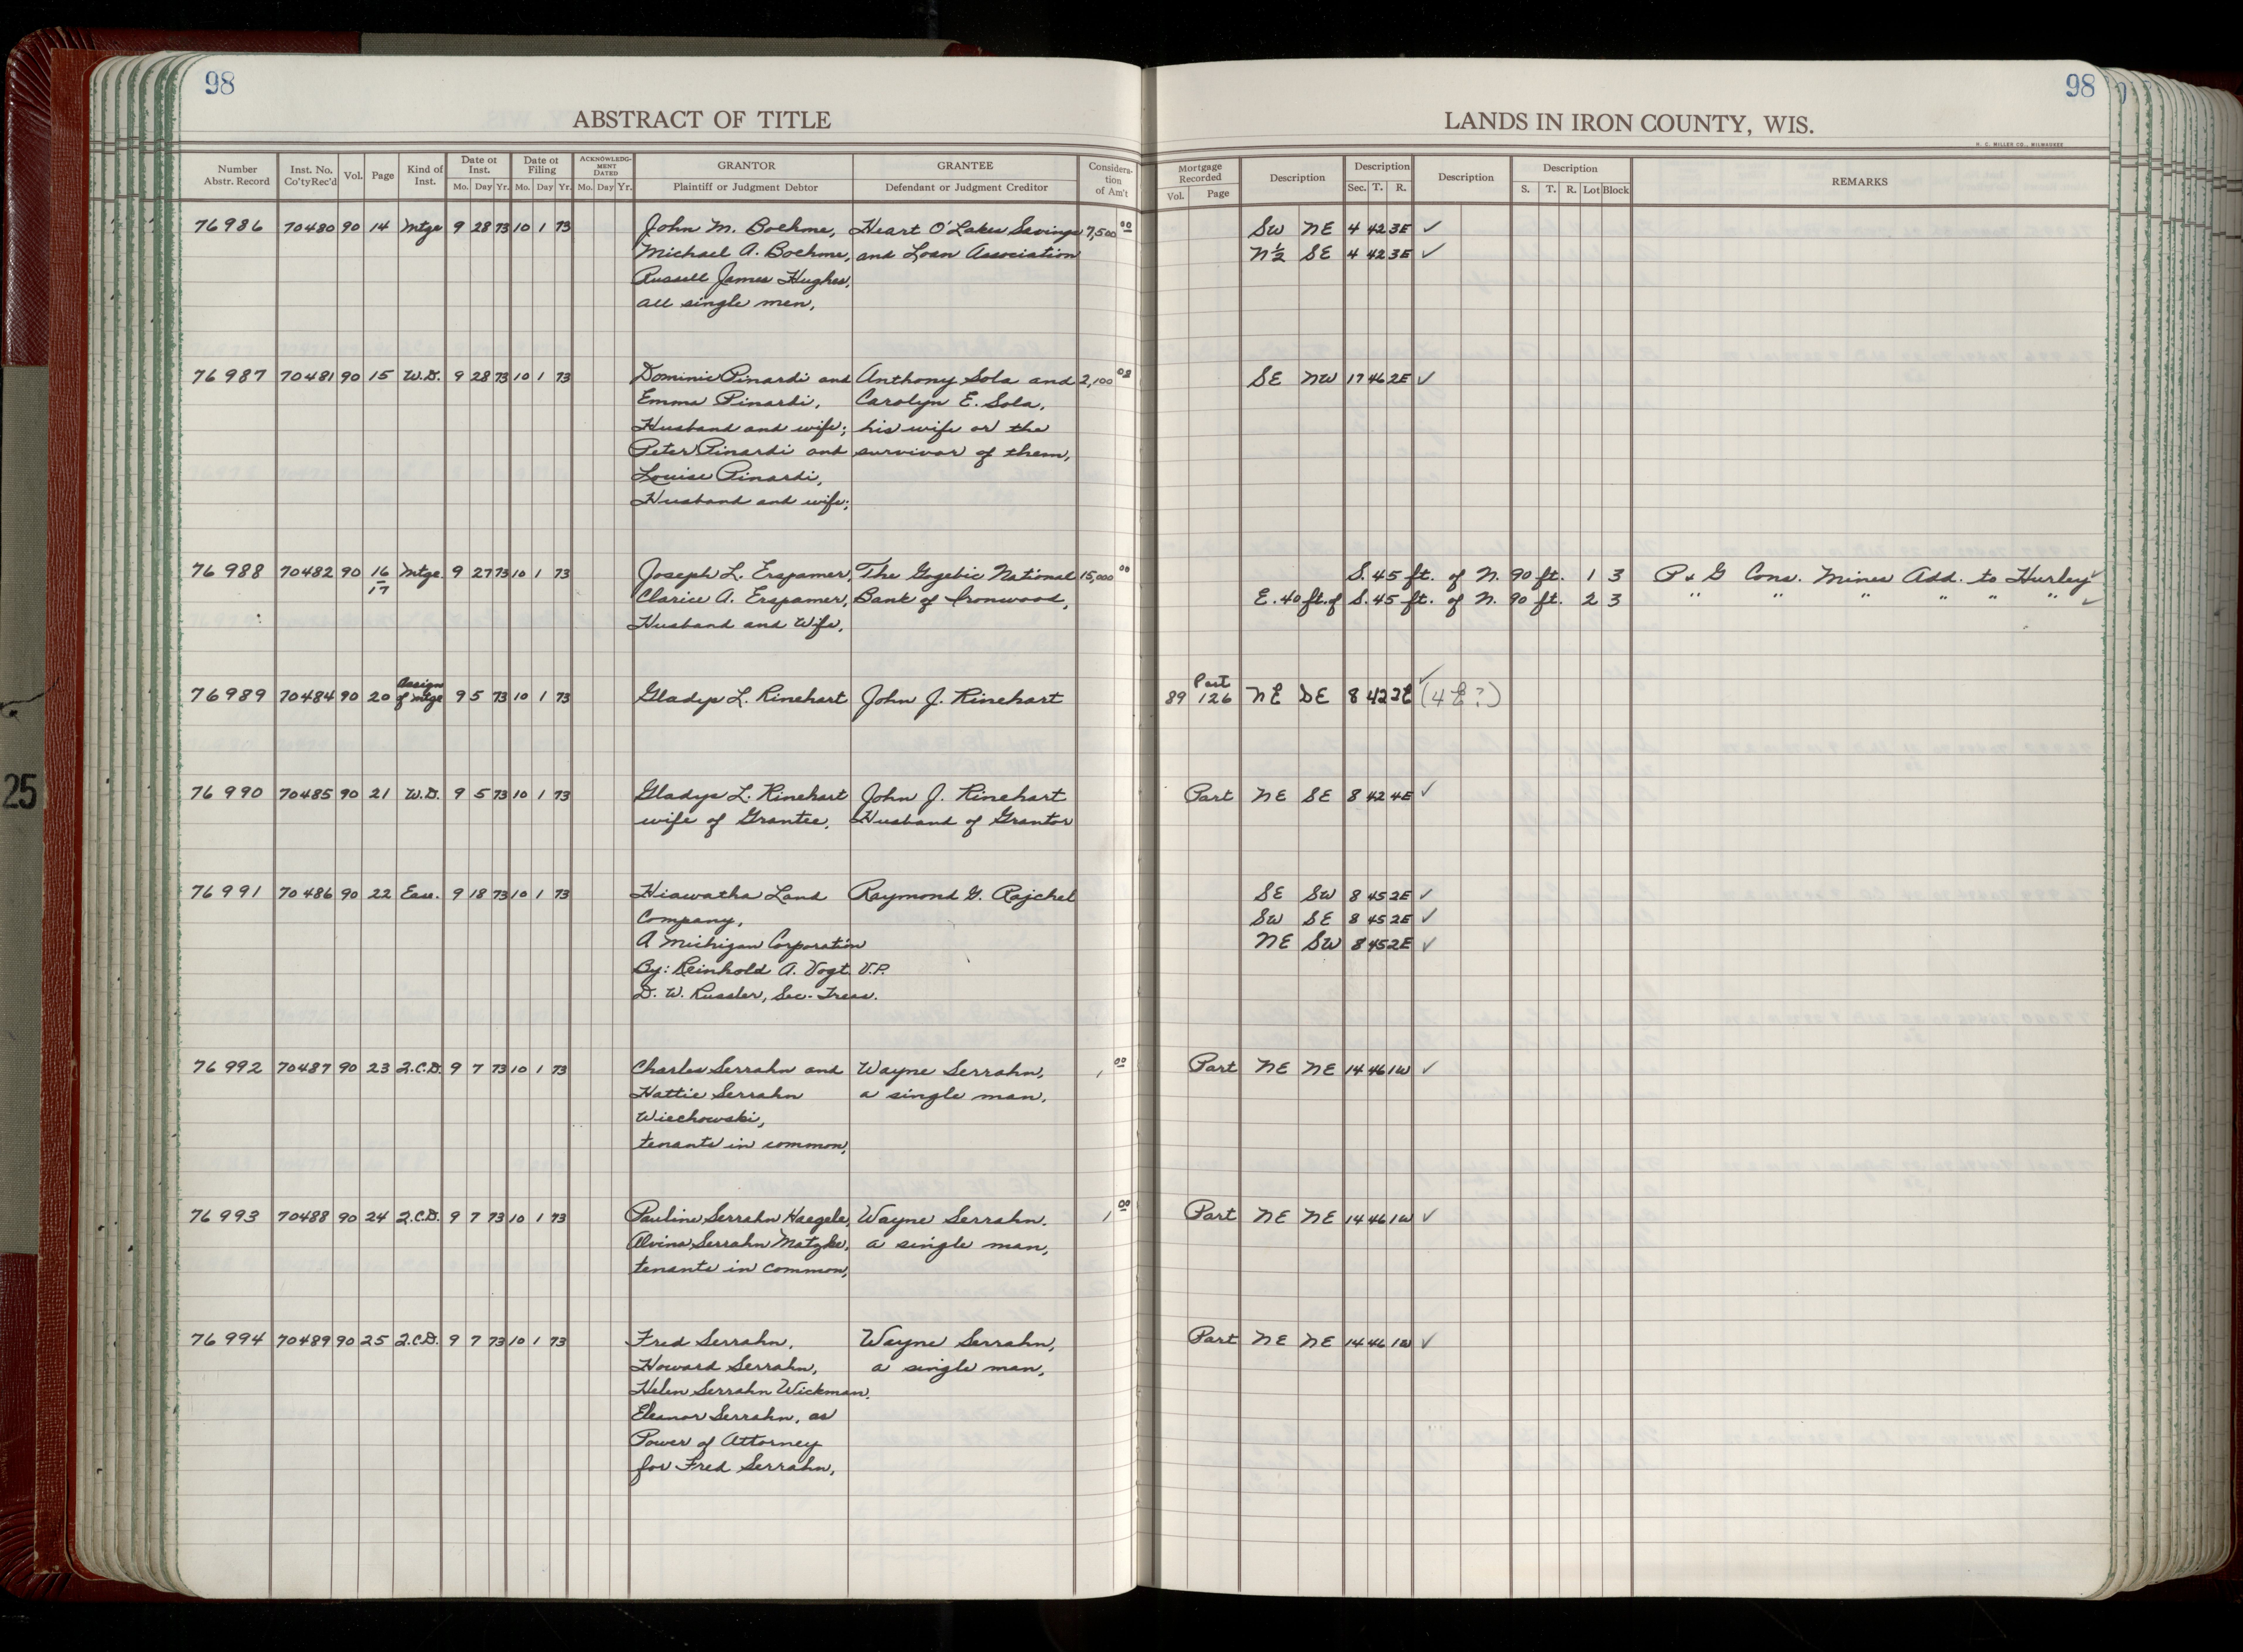 98
98
ABSTRACT OF TITLE
LANDS IN IRON COUNTY, WIS.
H. C. MILLER CO., MILWAUKEE
Number Abstr. Record Inst. No. Co'ty Rec'd Vol. Page Kind of Inst. Date of Inst. Mo. Day Yr. Date of Filing Mo. Day Yr. ACKNOWLEDGMENT DATED Mo. Day Yr. GRANTOR Plaintiff or Judgment Debtor GRANTEE Defendant or Judgment Creditor Consideration of Am't Mortgage Recorded Vol. Page Description Description Sec. T. R. Description Description S. T. R. Lot Block REMARKS
76986 70480 90 14 Mtge 9 28 73 10 1 73 John M. Boehme, Heart O'Lakes Savings 7,500 00 SW NE 4 42 3E ✓
Michael A. Boehme, and Loan Association N½ SE 4 42 3E ✓
Russell James Hughes,
all single men,
76987 70481 90 15 W.D. 9 28 73 10 1 73 Dominic Pinardi and Anthony Sola and 2,100 00 SE NW 17 46 2E ✓
Emma Pinardi, Carolyn E. Sola,
Husband and wife; his wife or the
Peter Pinardi and survivor of them,
Louise Pinardi,
Husband and wife;
76988 70482 90 16-17 Mtge 9 27 73 10 1 73 Joseph L. Erspamer, The Gogebic National 15,000 00 S. 45 ft. of N. 90 ft. 1 3 P & G Cons. Mines Add. to Hurley ✓
Clarice A. Erspamer, Bank of Ironwood, E. 40 ft. of S. 45 ft. of N. 90 ft. 2 3 " " " " " " ✓
Husband and Wife,
76989 70484 90 20 Assign of mtge 9 5 73 10 1 73 Gladys L. Rinehart John J. Rinehart 89 126 Part NE SE 8 42 3E ✓ (4E?)
76990 70485 90 21 W.D. 9 5 73 10 1 73 Gladys L. Rinehart John J. Rinehart Part NE SE 8 42 4E ✓
wife of Grantee, Husband of Grantor
76991 70486 90 22 Ease. 9 18 73 10 1 73 Hiawatha Land Raymond G. Rajchel SE SW 8 45 2E ✓
Company, SW SE 8 45 2E ✓
A Michigan Corporation NE SW 8 45 2E ✓
By: Reinhold A. Vogt V.P.
D. W. Russler, Sec.-Treas.
76992 70487 90 23 Q.C.D. 9 7 73 10 1 73 Charles Serrahn and Wayne Serrahn, 1 00 Part NE NE 14 46 1W ✓
Hattie Serrahn a single man,
Wiechowski,
tenants in common,
76993 70488 90 24 Q.C.D. 9 7 73 10 1 73 Pauline Serrahn Haegele, Wayne Serrahn. 1 00 Part NE NE 14 46 1W ✓
Alvina Serrahn Matzke, a single man,
tenants in common,
76994 70489 90 25 Q.C.D. 9 7 73 10 1 73 Fred Serrahn, Wayne Serrahn, Part NE NE 14 46 1W ✓
Howard Serrahn, a single man,
Helen Serrahn Wickman,
Eleanor Serrahn, as
Power of Attorney
for Fred Serrahn,
25